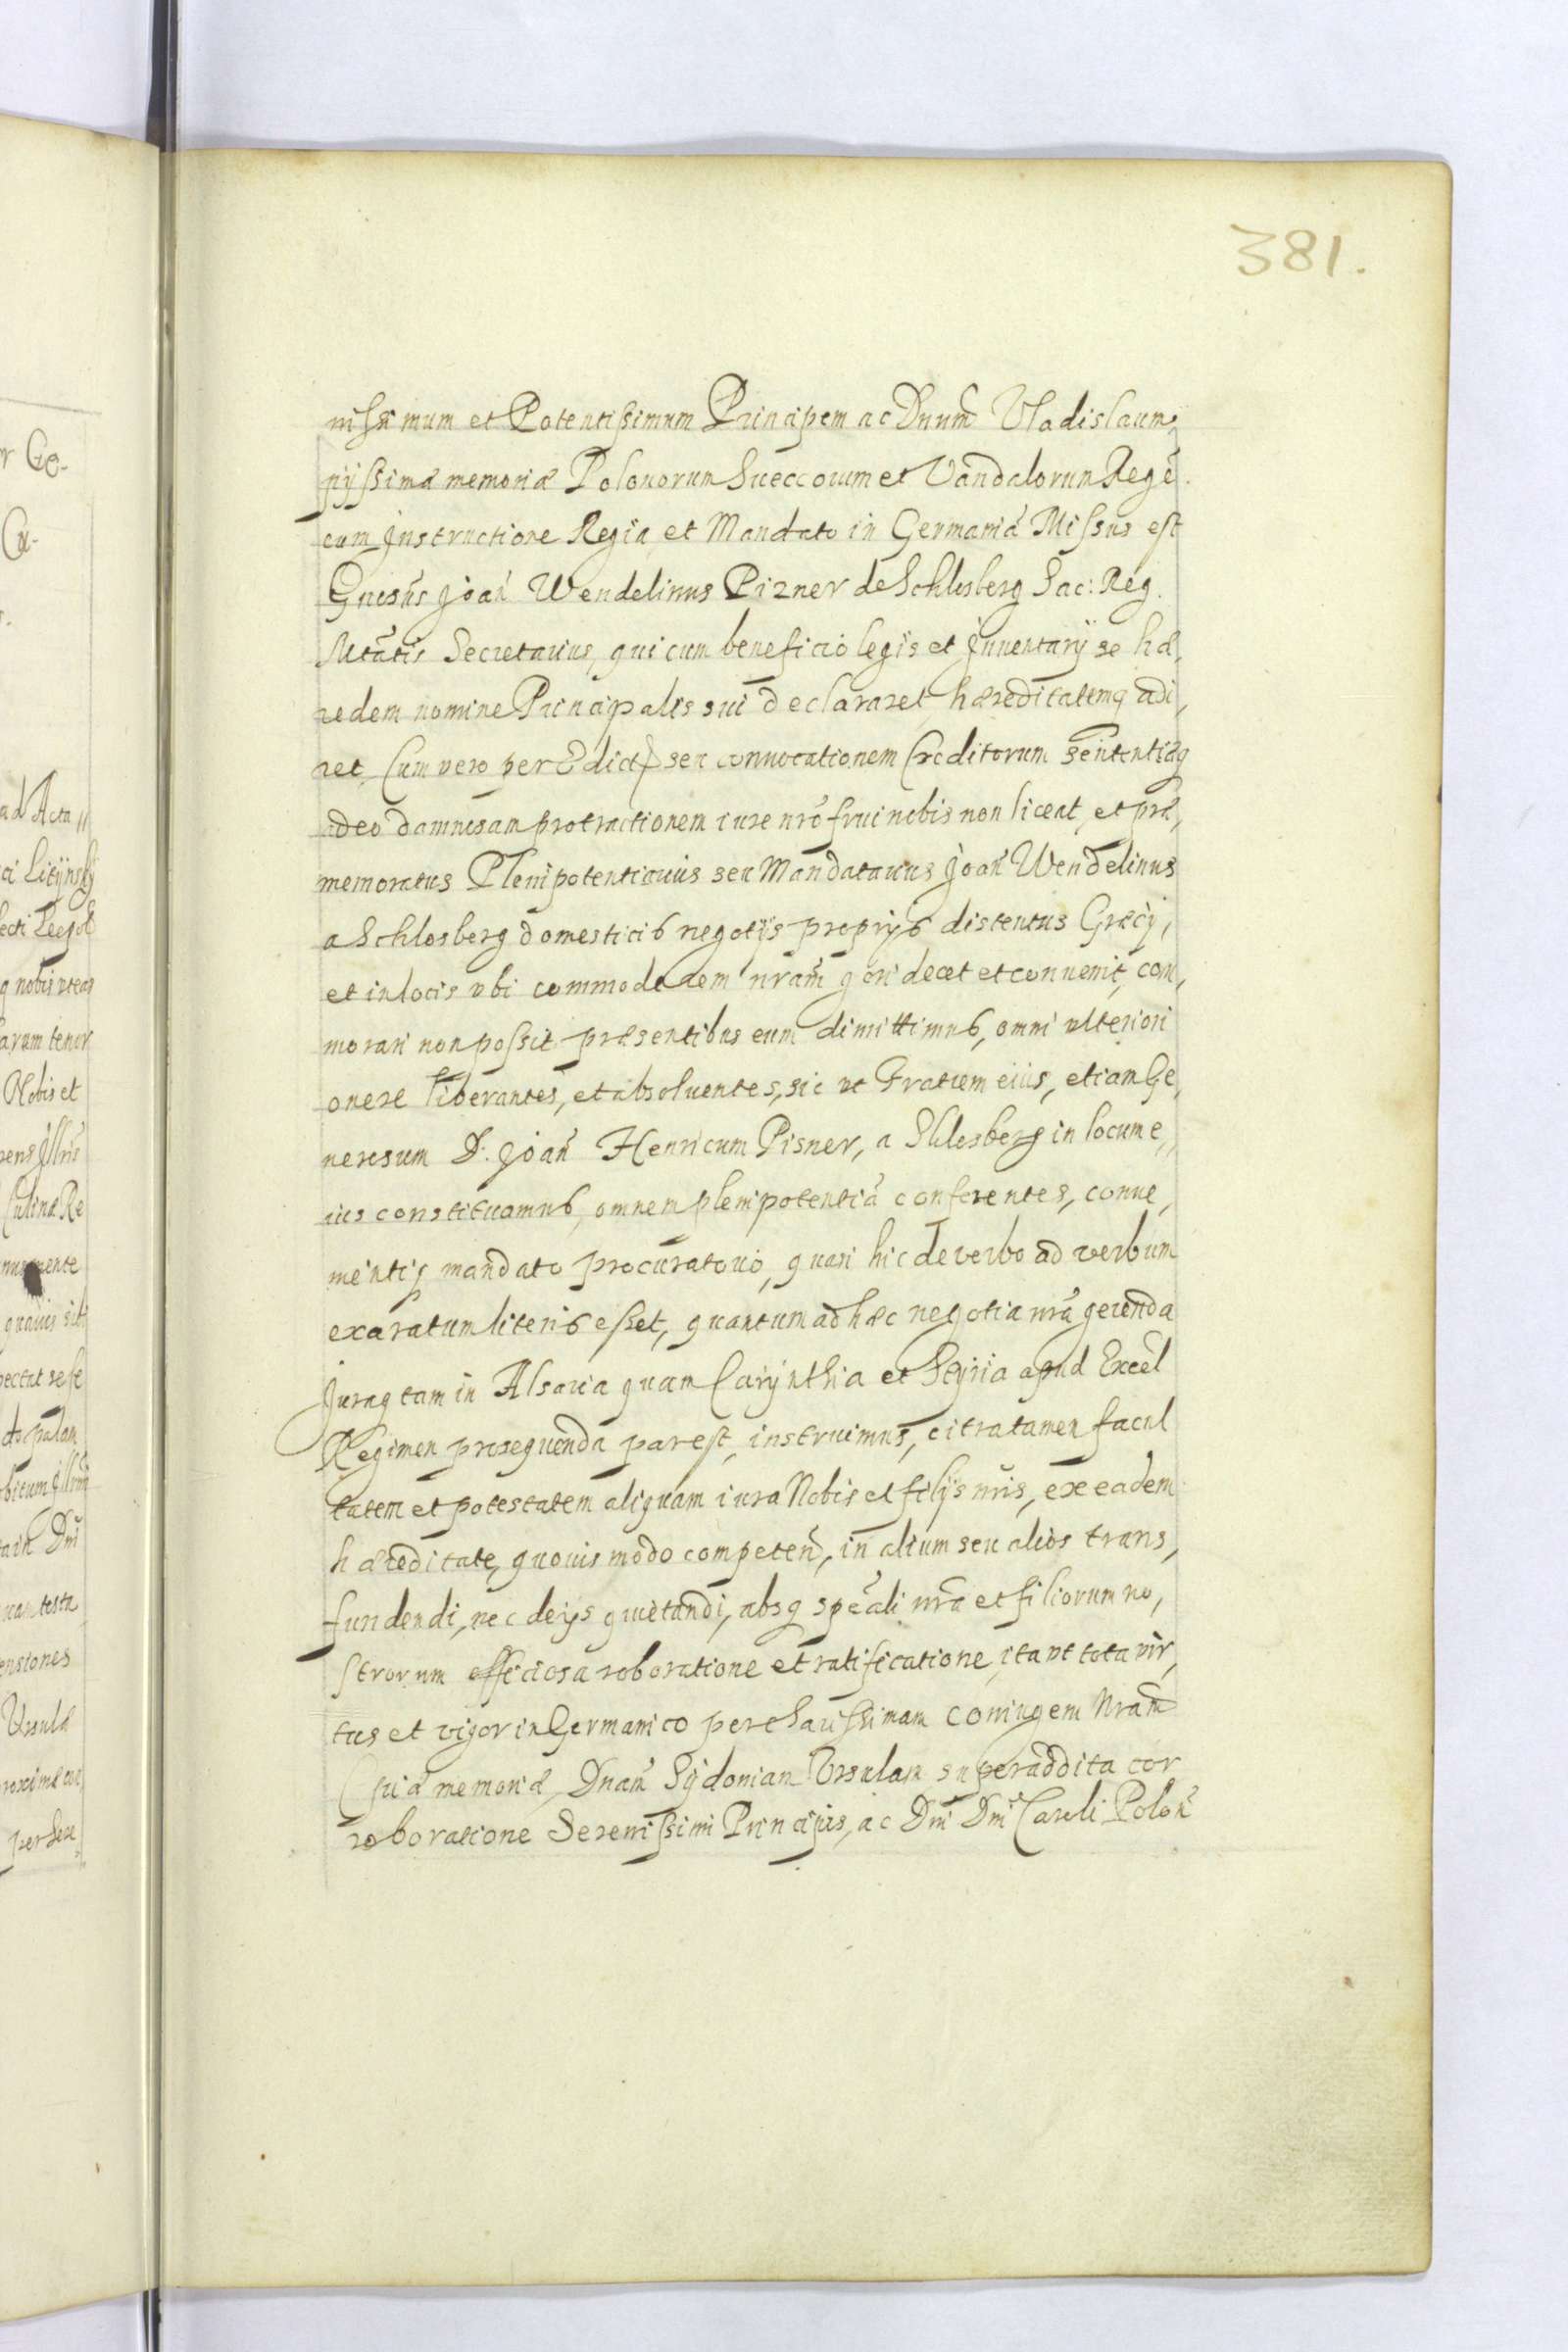 381.
nissimum et Potentissimum Principem ac Dnum̃ Vladislaum,
pijssimæ memoriæ Polonorum Sueccorum et Vandalorum Regẽ.
cum Jnstructione Regia et Mandato in Germaniã Missus est
Gñosus Joañ Wendelinus Pizner de Schlosberg Sac: Reg.
Mtãtis Secretarius, qui cum beneficio legis et Jnuentarij se hæ,
redem nomine Principalis sui declararet hæreditatemq adi,
ret, Cum vero per Edict seu conuocationem Creditorum sententiaq
adeo damnosam protractionem iure nrõ frui nobis non liceat, et præ,
memoratus Plenipotentiarius seu Mandatarius Joañ Wendelinus
a Schlosberg domesticis negotijs proprijs distentus Græcij,
et in locis vbi commode rem nrãm geri decet et conuenit, com,
morari non possit præsentibus eum dimittimus, omni vlteriori
onere liberantes, et absoluentes, sic vt Fratrem eius, etiam Ge,
nerosum D. Joañ Henricum Pisner, a Shlosberg in locum e,,
ius constituamus, omnem plenipotentiã conferentes, conue,
nientiq mandato procuratorio, quasi hic de verbo ad verbum
exaratum literis esset, quantum ad hæc negotia nrã gerenda
Juraq tam in Alsaria quam Carynthia et Styria apud Excel̃
Regimen prosequenda par est, instruimus, citra tamen facul
tatem et potestatem aliquam iura Nobis et filijs nris, ex eadem
hæreditate, quouis modo competeñ, in alium seu alios trans,
fundendi, nec de ijs quietandi, absq speãli nrã et filiorum no,
strorum efficiosa roboratione et ratificatione, ita vt tota vir,
tus et vigor in Germanico per charissimam coniugem Nram̃
piæ memoriæ, Dnam̃ Sydoniam Vrsulam superaddita cor
roboratione Serenissimi Principis, ac Dnĩ Dnĩ Caroli Poloñ